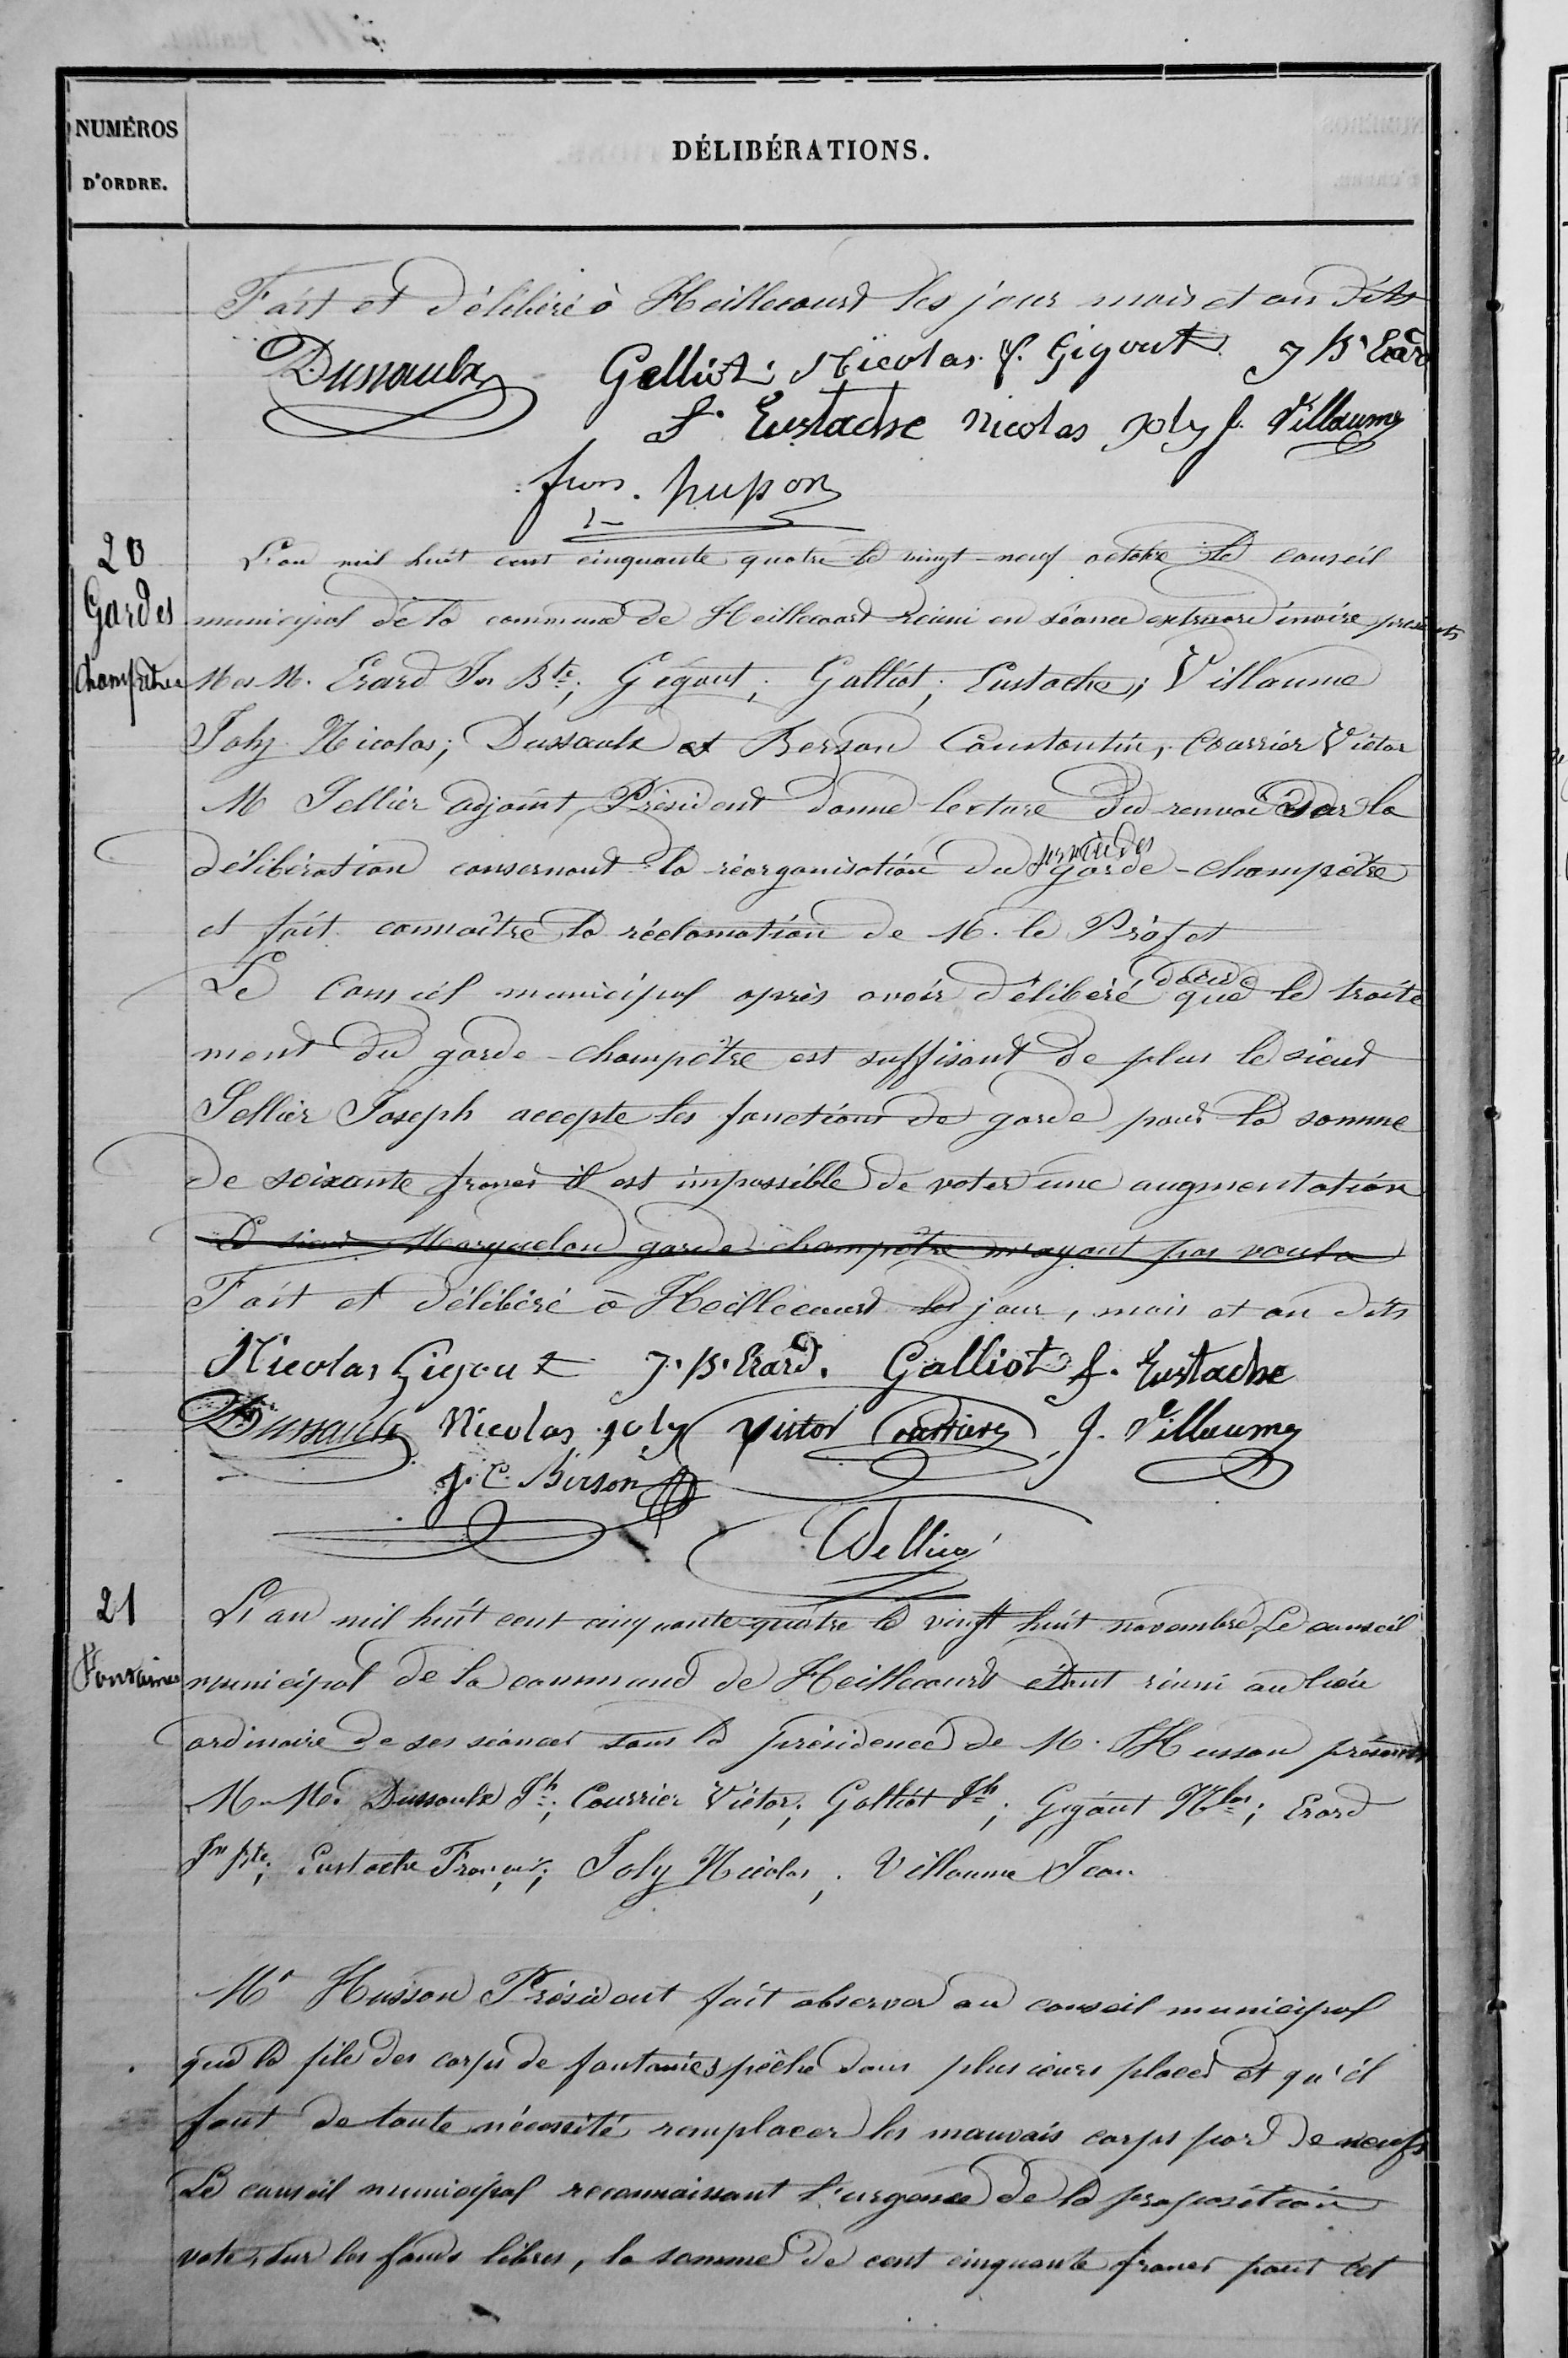 NUMÉROS
D'ORDRE.
DÉLIBÉRATIONS.
Fait et délibéré à Heillecourt les jour mois et an dits
Dussaulx Galliot Nicolas Gigout J B Erard
F. Eustache Nicolas Joly J. Villaume
20
Gardes
Champêtre
L'an mil huit cent cinquante quatre le vingt-neuf octobre le conseil
municipal de la commune de Heillecourt réuni en séance extraordinaire présents
M M. Erard Jn Bte; Gigout; Galliot; Eustache; Villaume
Joly Nicolas; Dussaulx et Berson Constantin, Courrier Victor
M Sellier adjoint Président donne lecture du renvoi de la
délibération consernant la réorganisation du service des garde-champêtre
et fait connaître la réclamation de M. le Préfet
Le Conseil municipal après avoir délibéré, décide que le traite
ment du garde-champêtre est suffisant de plus le sieur
Sellier Joseph accepte les fonctions de garde pour la somme
de soixante francs il est impossible de voter une augmentation
Le sieur Marquelon garde champêtre n'ayant pas voulu
Fait et délibéré à Heillecourt les jour, mois et an dits
Nicolas Gigout J. B. Erard. Galliot f. Eustache
Dussaulx Nicolas joly Victor Courrier J. Villaume
J. C. Berson
21
Fontaines
L'an mil huit cent cinquante-quatre le vingt huit novembre, Le conseil
municipal de la commune de Heillecourt étant réuni au lieu
ordinaire de ses séances sous la présidence de M. Husson présents
M. M. Dussaulx Jh; Courrier Victor; Galliot Jh; Gigout Nlas; Erard
Jn Bte; Eustache François; Joly Nicolas; Villaume Jean
Mr Husson Président fait observer au conseil municipal
que la file des corps de fontaines pêche dans plusieurs places et qu'il
faut de toute nécessité remplacer les mauvais corps par de neufs
Le conseil municipal reconnaissant l'urgence de la proposition
vote, sur les fonds libres, la somme de cent cinquante francs pour cet